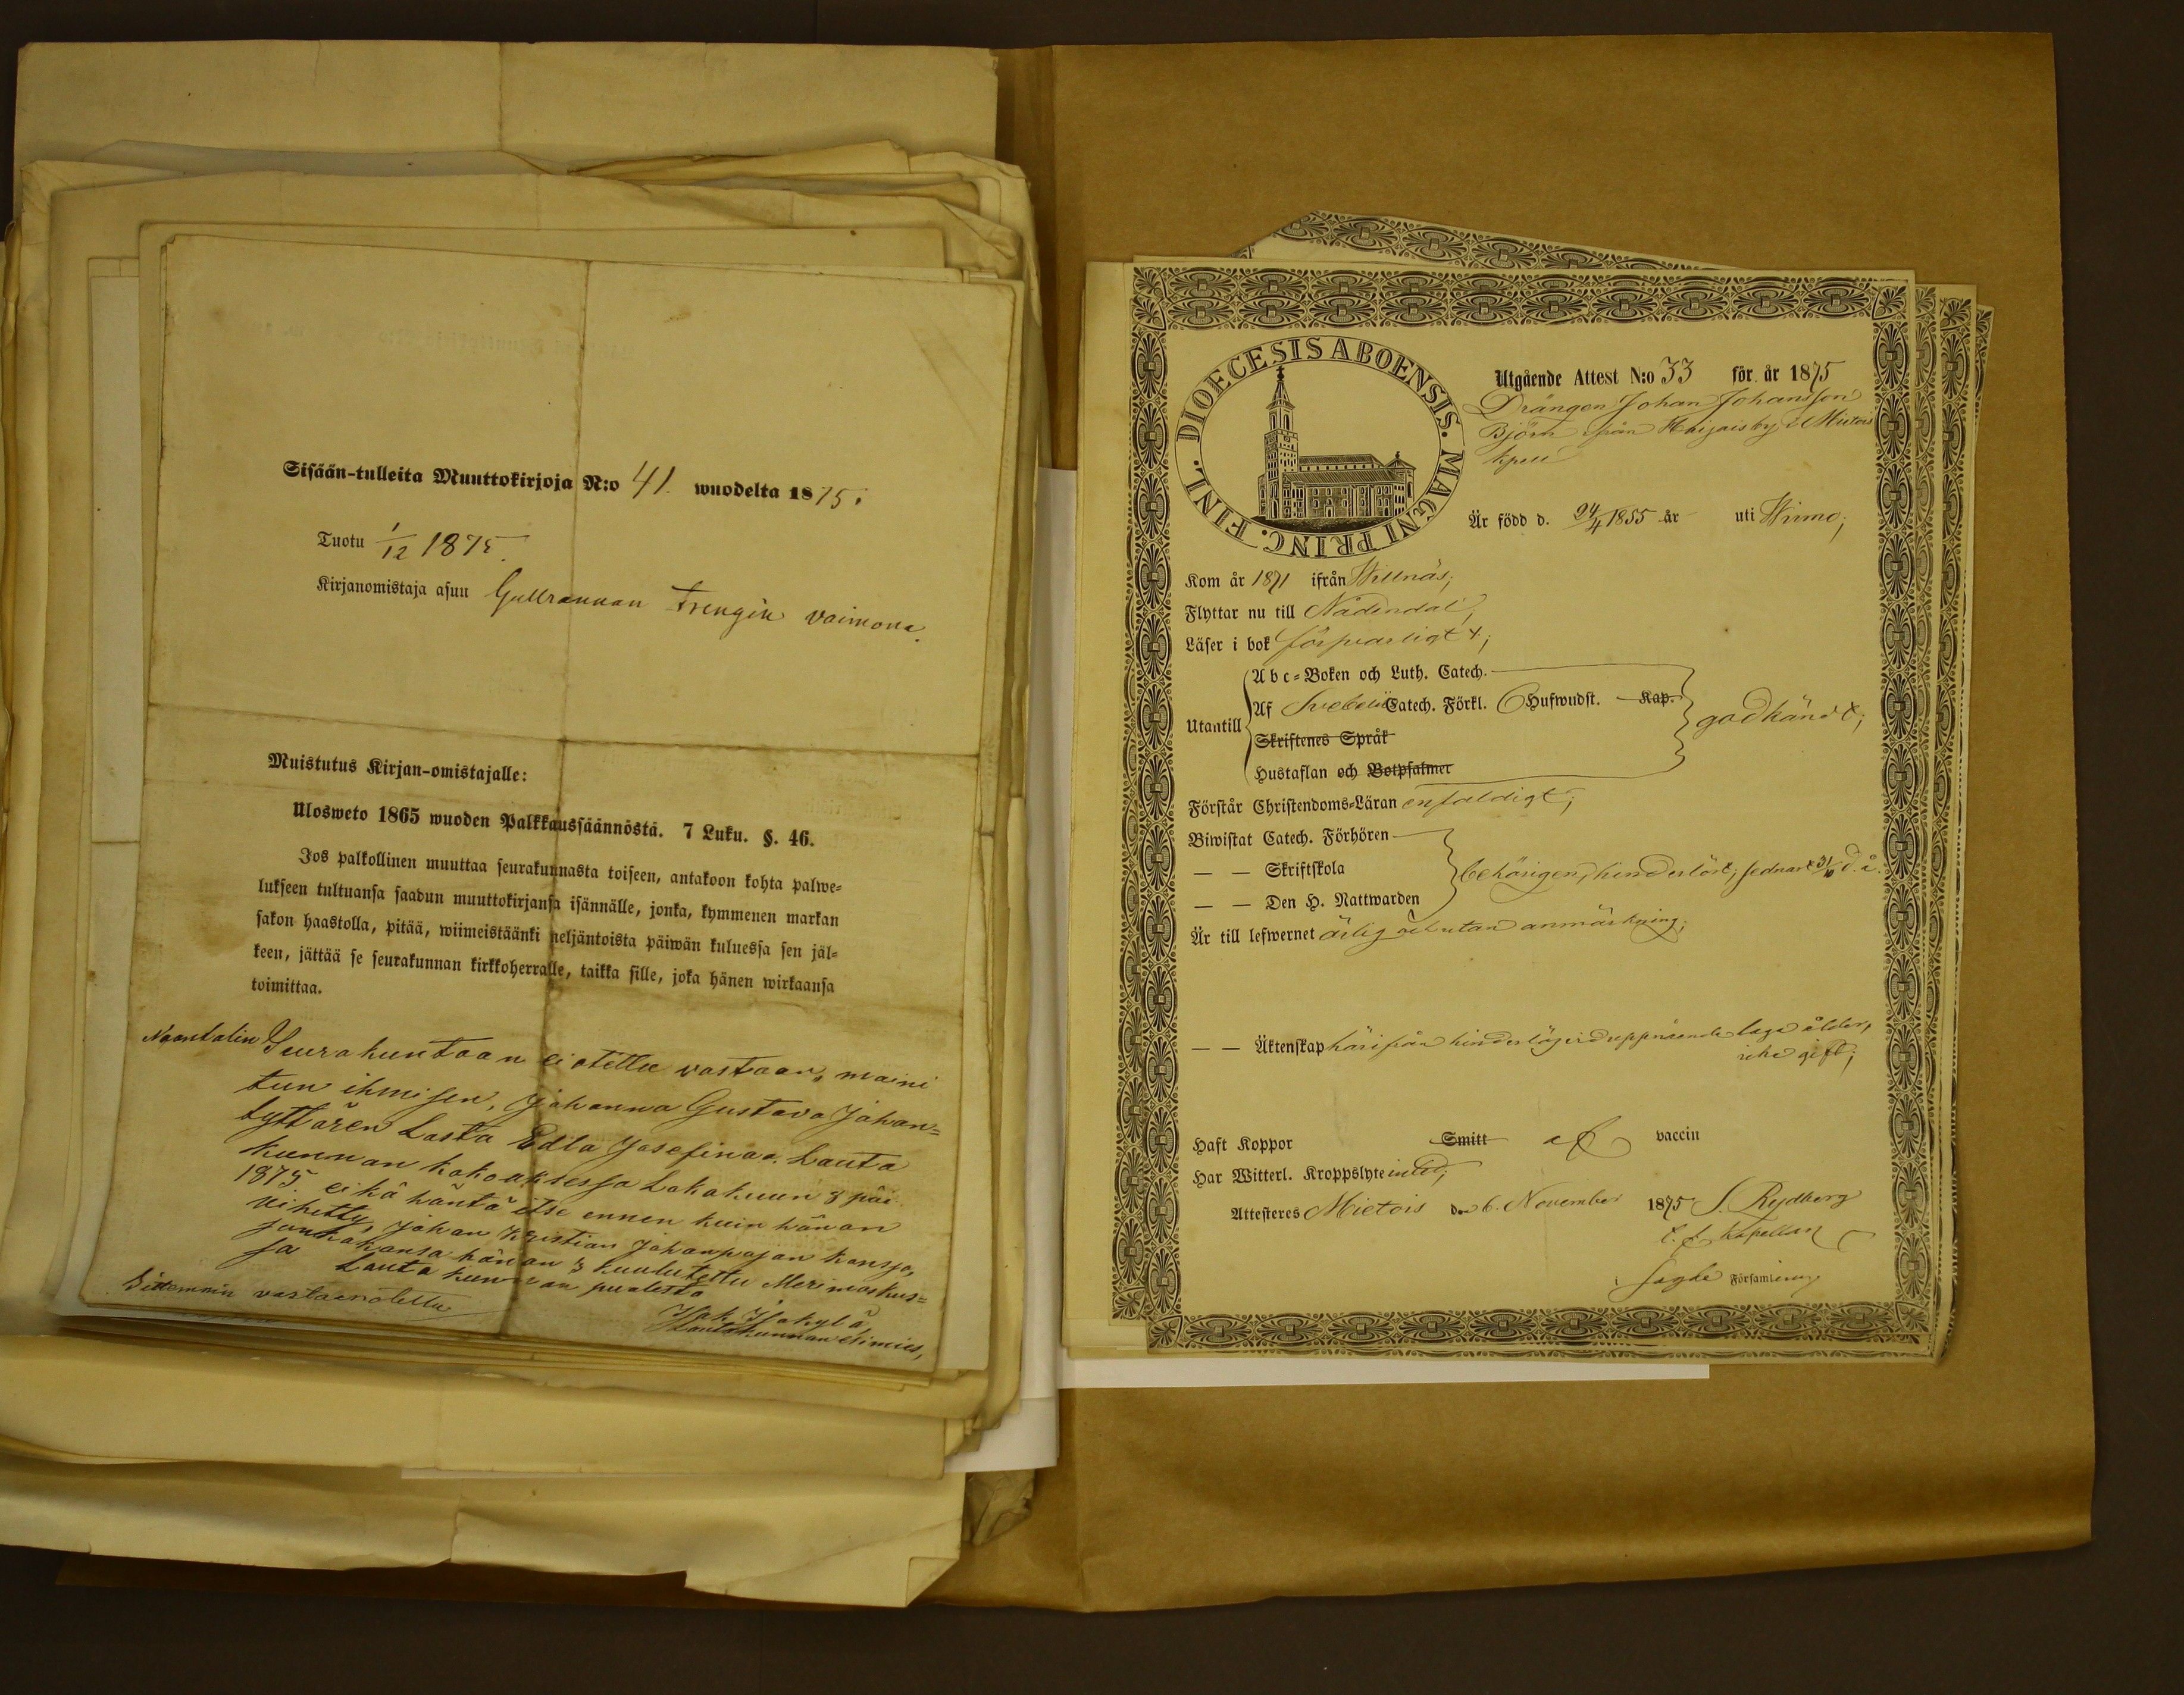 Sisään-tulleita Muuttokirjoja N:o 41. wuodelta 1875.
Tuotu 1/12 1875.
Kirjanomistaja asuu Gullrannan trengin vaimona.
Muistutus Kirjan-omistajalle:
Ulosweto 1865 wuoden Palkkaussäännöstä. 7 Luku. §. 46.
Jos palkollinen muuttaa seurakunnasta toiseen, antakoon kohta palwe=
lukseen tultuansa saadun muuttokirjansa isännälle, jonka, kymmenen markan
sakon haastolla, pitää, wiimeistäänki neljäntoista päiwän kuluessa sen jäl=
keen, jättää se seurakunnan kirkkoherralle, taikka sille, joka hänen wirkaansa
toimittaa.
Naantalin Seurakuntaan ei otettu vastaan, maini
tun ihmisen, Johanna Gustava Johan=
tyttären Lasta Edla Josefinaa. Lauta
kunnan kokouksessa Lokakuun 8 päi
1875 eikä häntä itse ennen kuin hänan
vihetty, Johan Kristian Johanpojan kansa,
jonka kansa hänan 3 kuulutettu Merimaskus=
sa Lauta kunnan puolesta
Lautakunnan esimies,
Sittemmin vastaanotettu
DIOECESIS ABOENSIS. MAGNI PRINC. FINL.
Utgående Attest N:o 33 för år 1875
Drängen Johan Johansson
Björn från i Mietois
kpell
Är född d. 24/4 1855 år uti Wirmo;
Kom år 1871 ifrån Willnäs;
Flyttar nu till Nådendal;
Läser i bok försvarligt;
Utantill
Abc=Boken och Luth. Catech.
Af Svebelii Catech. Förkl. 6 Hufwudst. Kap.
Skriftenes Språk
Hustaflan och Botpsalmer
godkändt;
Förstår Christendoms=Läran enfaldigt;
Biwistat Catech. Förhören
— — Skriftskola
— — Den H. Nattwarden
behörigen, hinderlöst; sednast 31/10 d. å.
Är till lefwernet ärlig och utan anmärkning;
— — Äktenskap härifrån hinderlös vid uppnående laga ålder,
icke gift;
Haft Koppor Smitt af vaccin
Har Witterl. Kroppslyte intet;
Attesteres Mietois den 6. November 1875 S. Rydberg
Kapellan
Sagde Församling